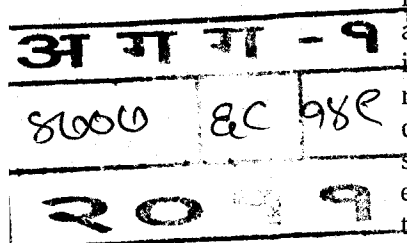 अ ग ग - १
४७०७ ६८ १४९
२ ० १ १